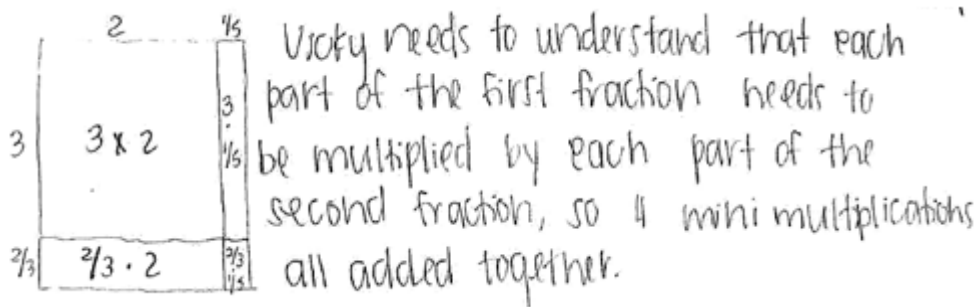 2 1/5
3 3 x 2 3 · 1/5
2/3 2/3 · 2 2/3 · 1/5
Vicky needs to understand that each
part of the first fraction needs to
be multiplied by each part of the
second fraction, so 4 mini multiplications
all added together.